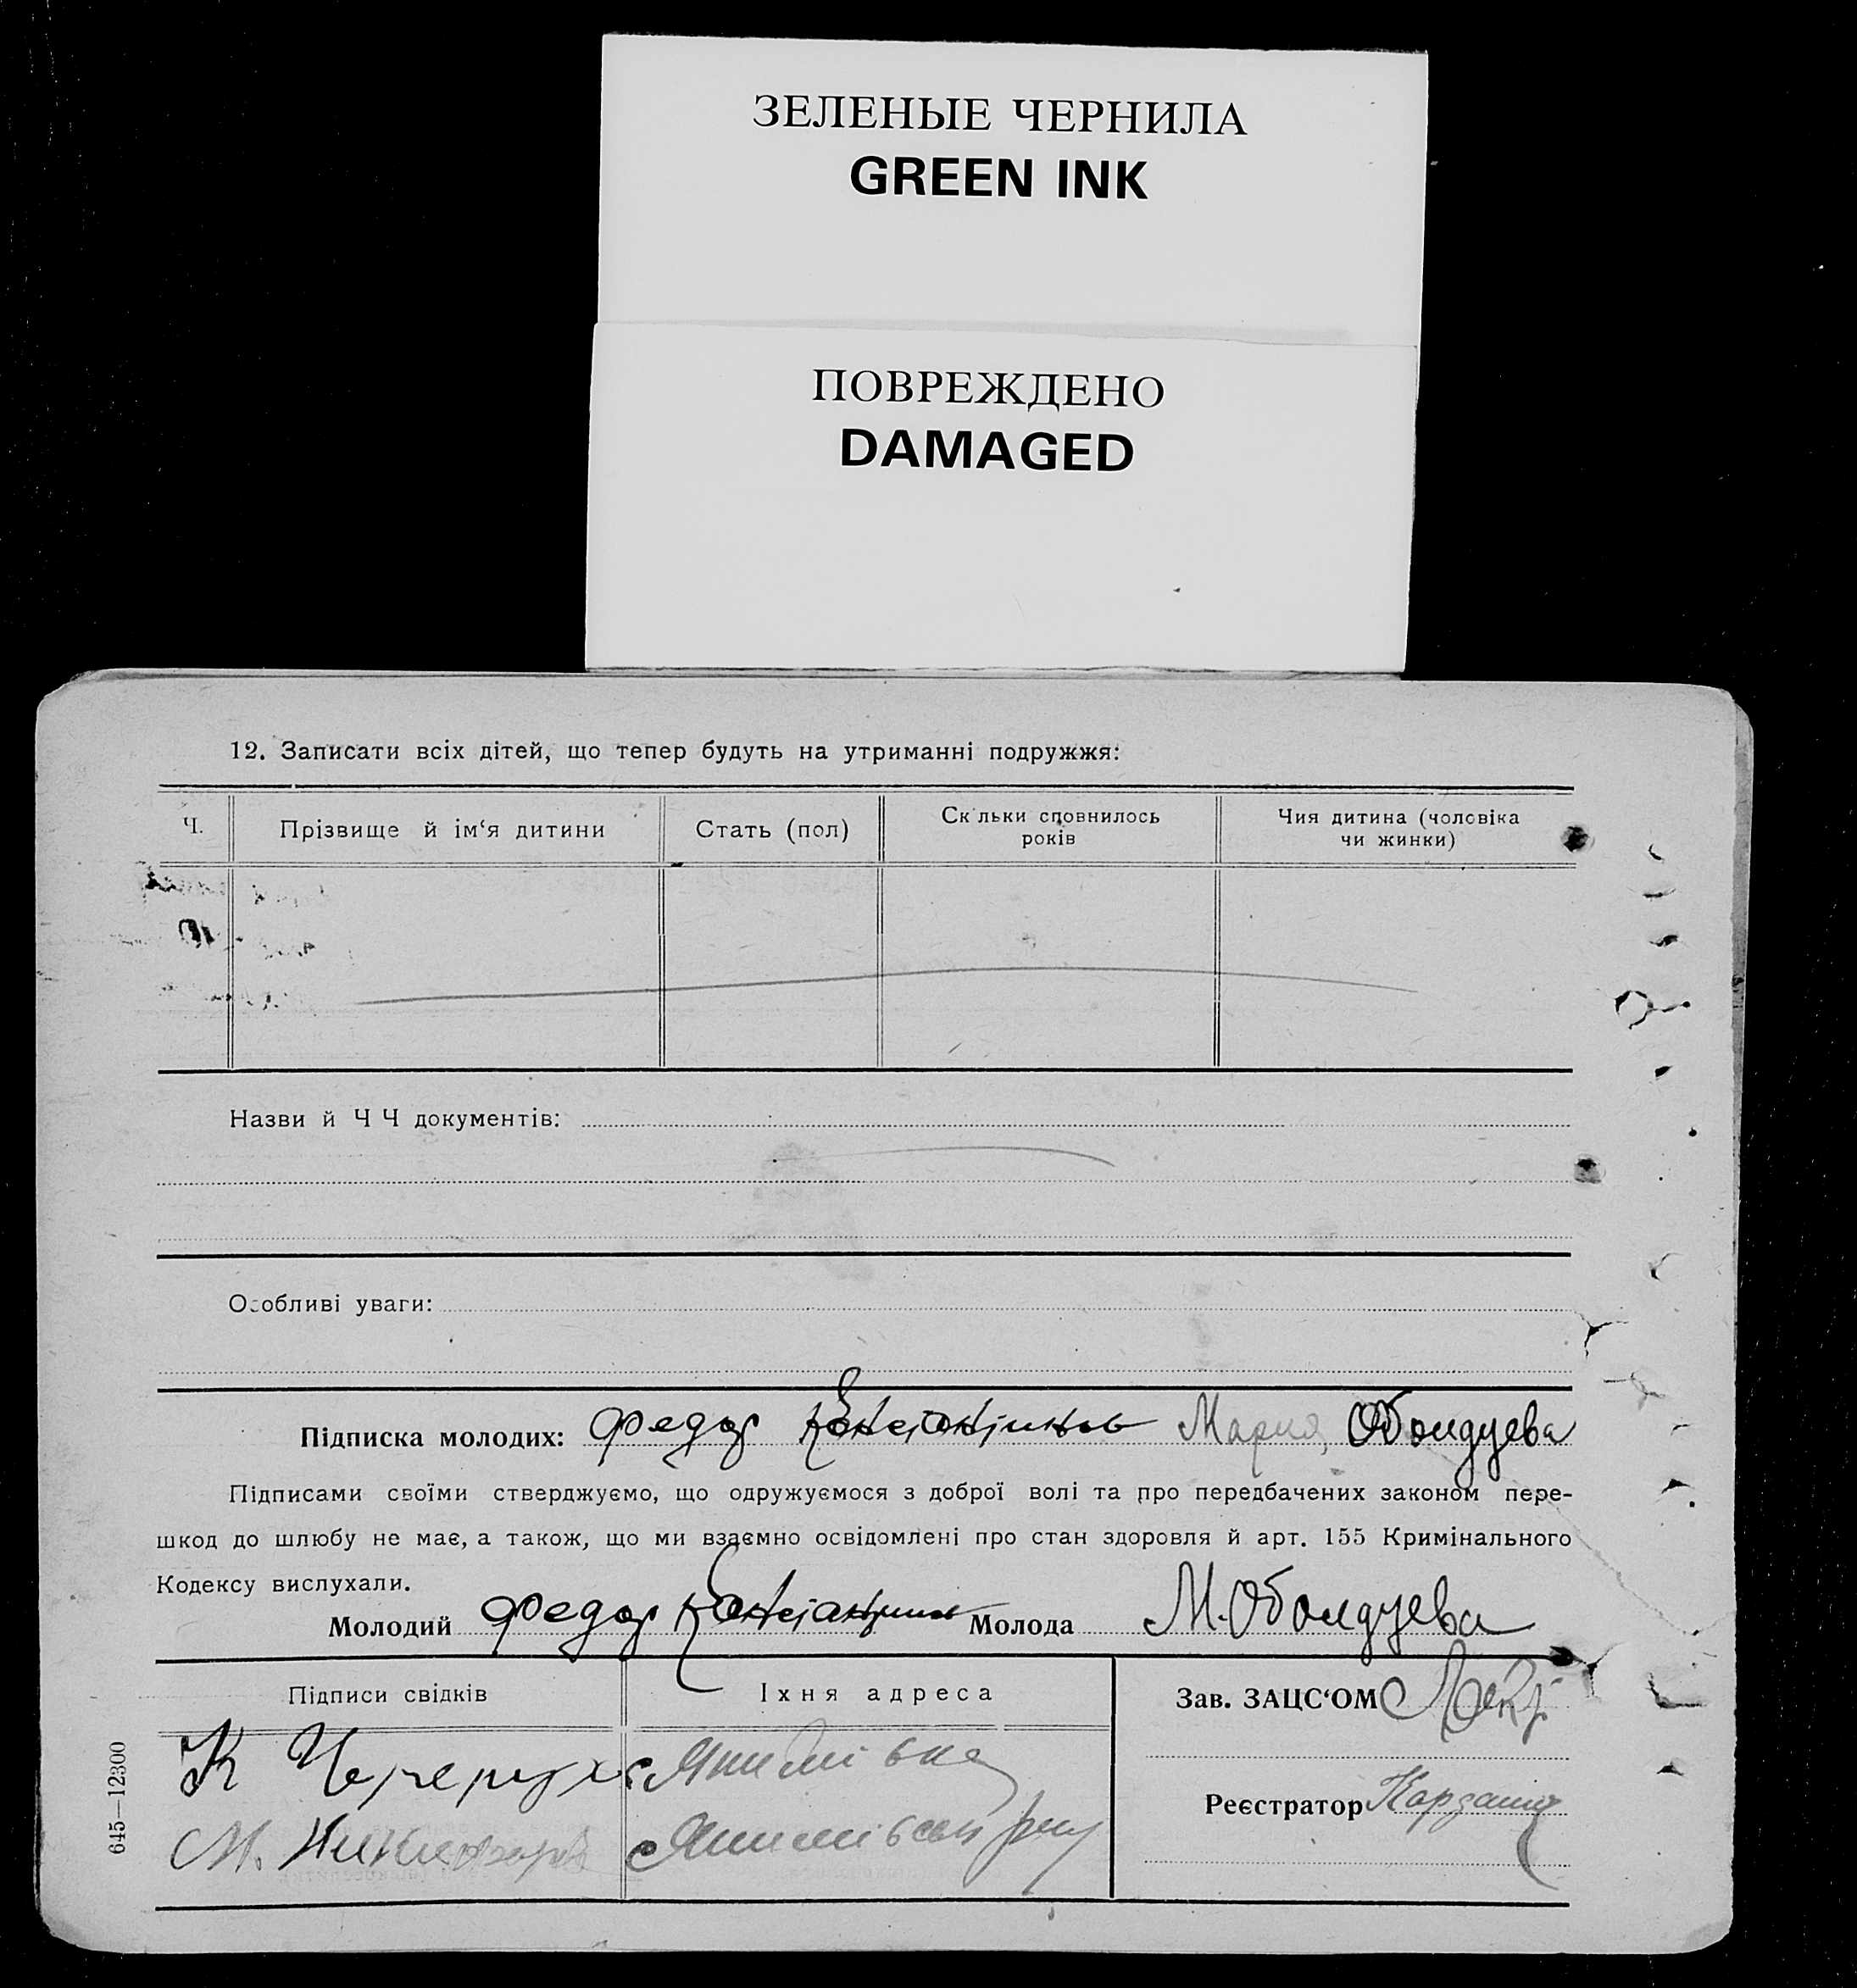 ЗЕЛЕНЫЕ ЧЕРНИЛА
GREEN INK
ПОВРЕЖДЕНО
DAMAGED
12. Записати всіх дітей, що тепер будуть на утриманні подружжя:
Ч. Прізвище й ім‘я дитини Стать (пол) Ск льки сповнилось років Чия дитина (чоловіка чи жинки)
Назви й Ч Ч документів:
Особливі уваги:
Підписка молодих: Федор Константинов Мария Оболдуева
Підписами своїми стверджуємо, що одружуємося з доброї волі та про передбачених законом пере-
шкод до шлюбу не має, а також, що ми взаємно освідомлені про стан здоровля й арт. 155 Кримінального
Кодексу вислухали.
Молодий Федор Константинов Молода М. Оболдуева
Підписи свідків Їхня адреса Зав. ЗАЦС‘ОМ
К
М. Реєстратор
645—12300